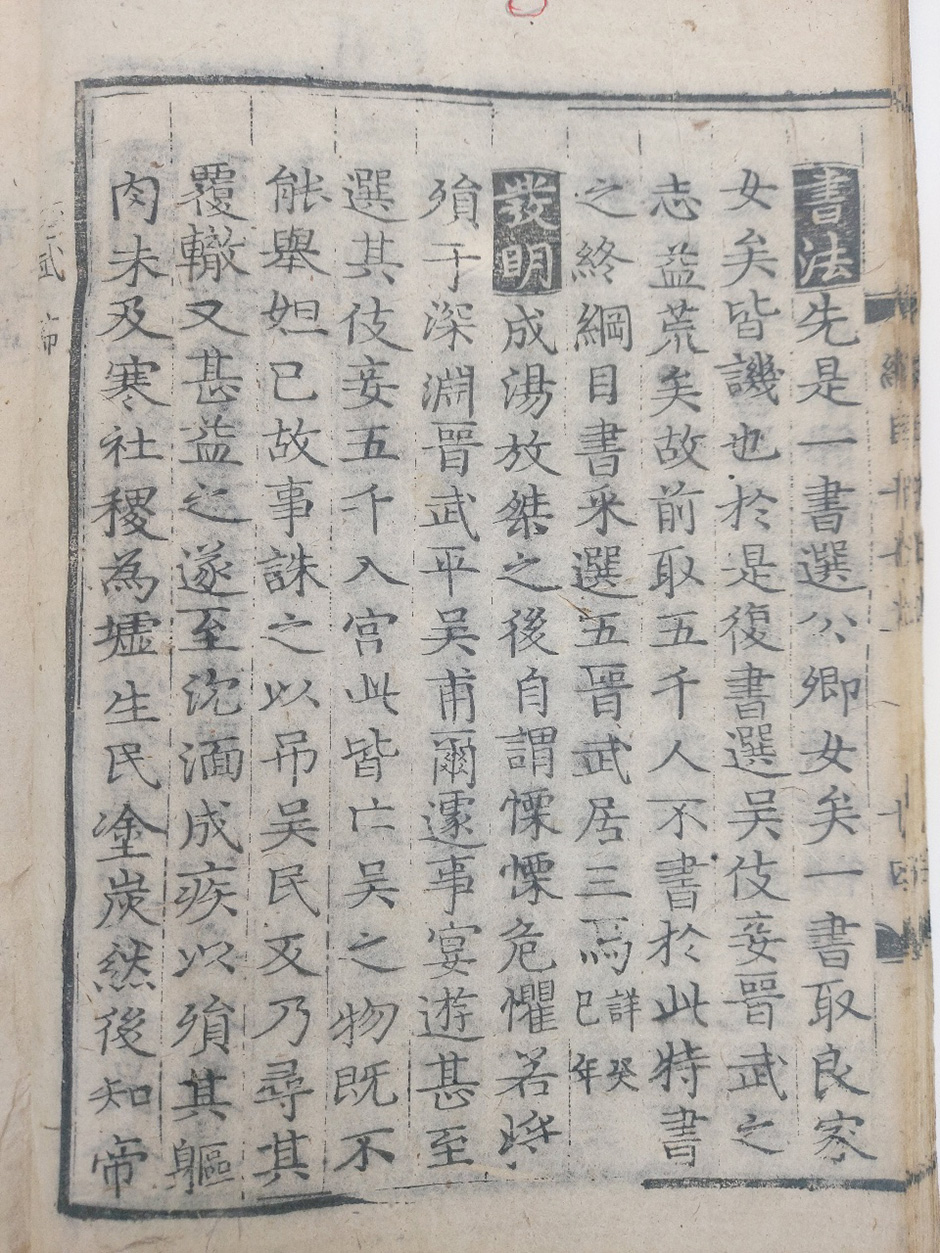 書法先是一書選公卿女矣一書取良家
女矣皆譏也於是復書選吳伎妾晋武之
志益荒矣故前取五千人不書於此特書
之終綱目書采選五晋武居三焉詳癸巳年
發明成湯放桀之後自謂慄慄危懼若將
殞于深淵晋武平吳甫爾遽事宴遊甚至
選其伎妾五千入宮此皆亡吳之物既不
能舉妲己故事誅之以吊吳民又乃尋其
覆轍又甚益之遂至沈湎成疾以殞其軀
肉未及寒社稷為墟生民塗炭然後知帝
武
節
綱目
十四